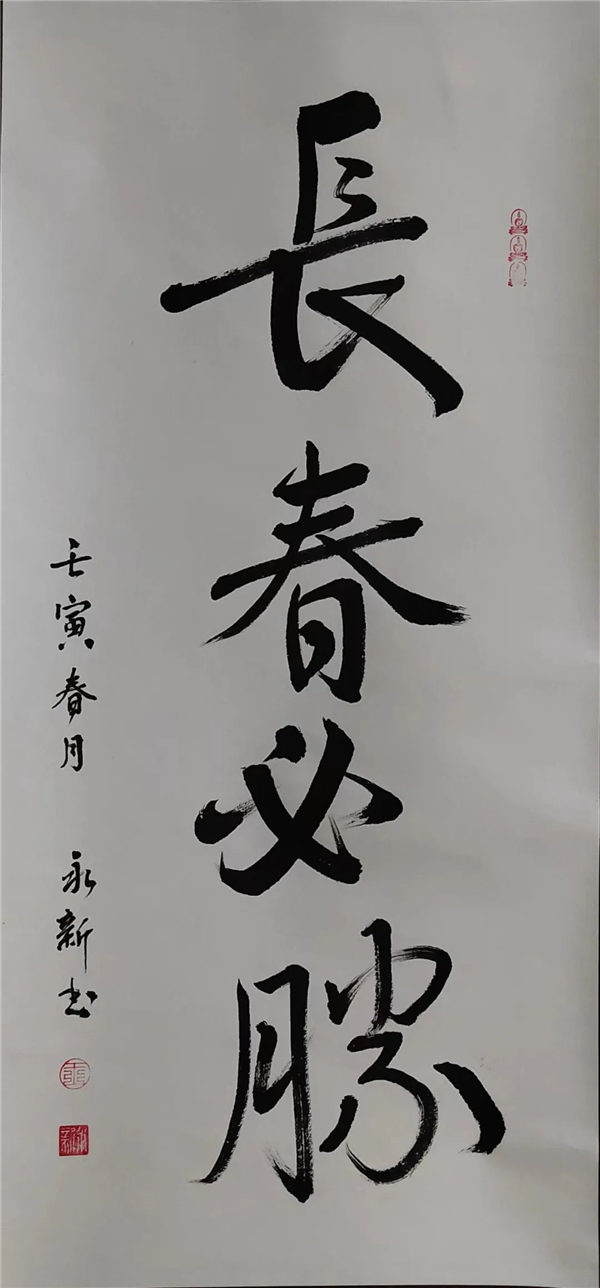 長春必勝
壬寅春月 永新书